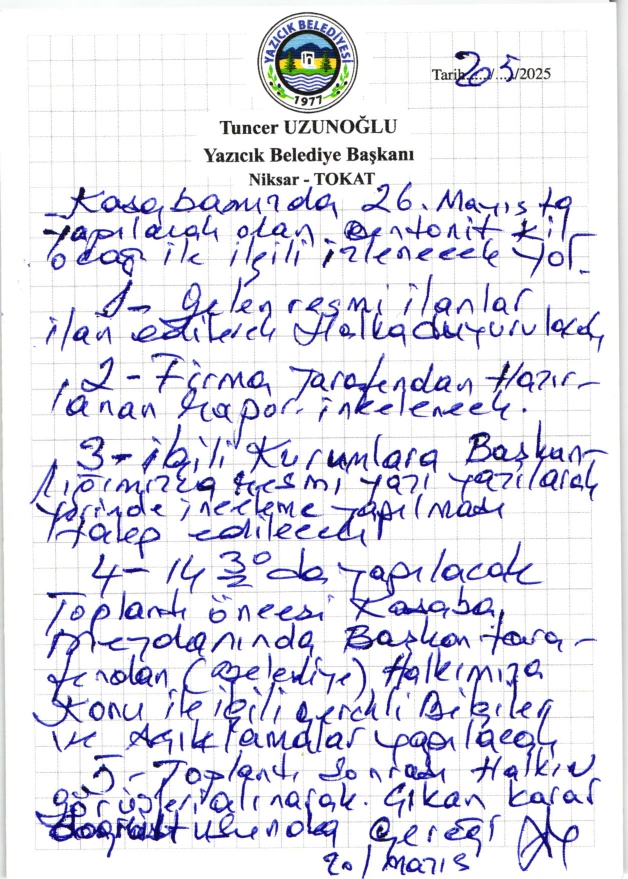 YAZICIK BELEDİYESİ
1977
Tarih 20/5/2025
Tuncer UZUNOĞLU
Yazıcık Belediye Başkanı
Niksar - TOKAT
Kasabamızda 26. Mayıs ta
yapılacak olan Bentonit Kil
ocağı ile ilgili izlenecek yol.
1- Gelen resmi ilanlar
ilan edilerek Halka duyurulacak
2- Firma Tarafından Hazır-
lanan Rapor incelenecek.
3- ilgili Kurumlara Başkan-
lığımızca resmi yazı yazılarak
yerinde inceleme yapılması
talep edilecek
4- 14 30 da yapılacak
Toplantı öncesi Kasaba
Meydanında Başkan tara-
fından (Belediye) Halkımıza
Konu ile ilgili gerekli Bilgiler
ve Açıklamalar yapılacak
5- Toplantı sonrası Halkın
görüşleri alınarak. Çıkan karar
doğrultusunda Gereği
20/mayıs